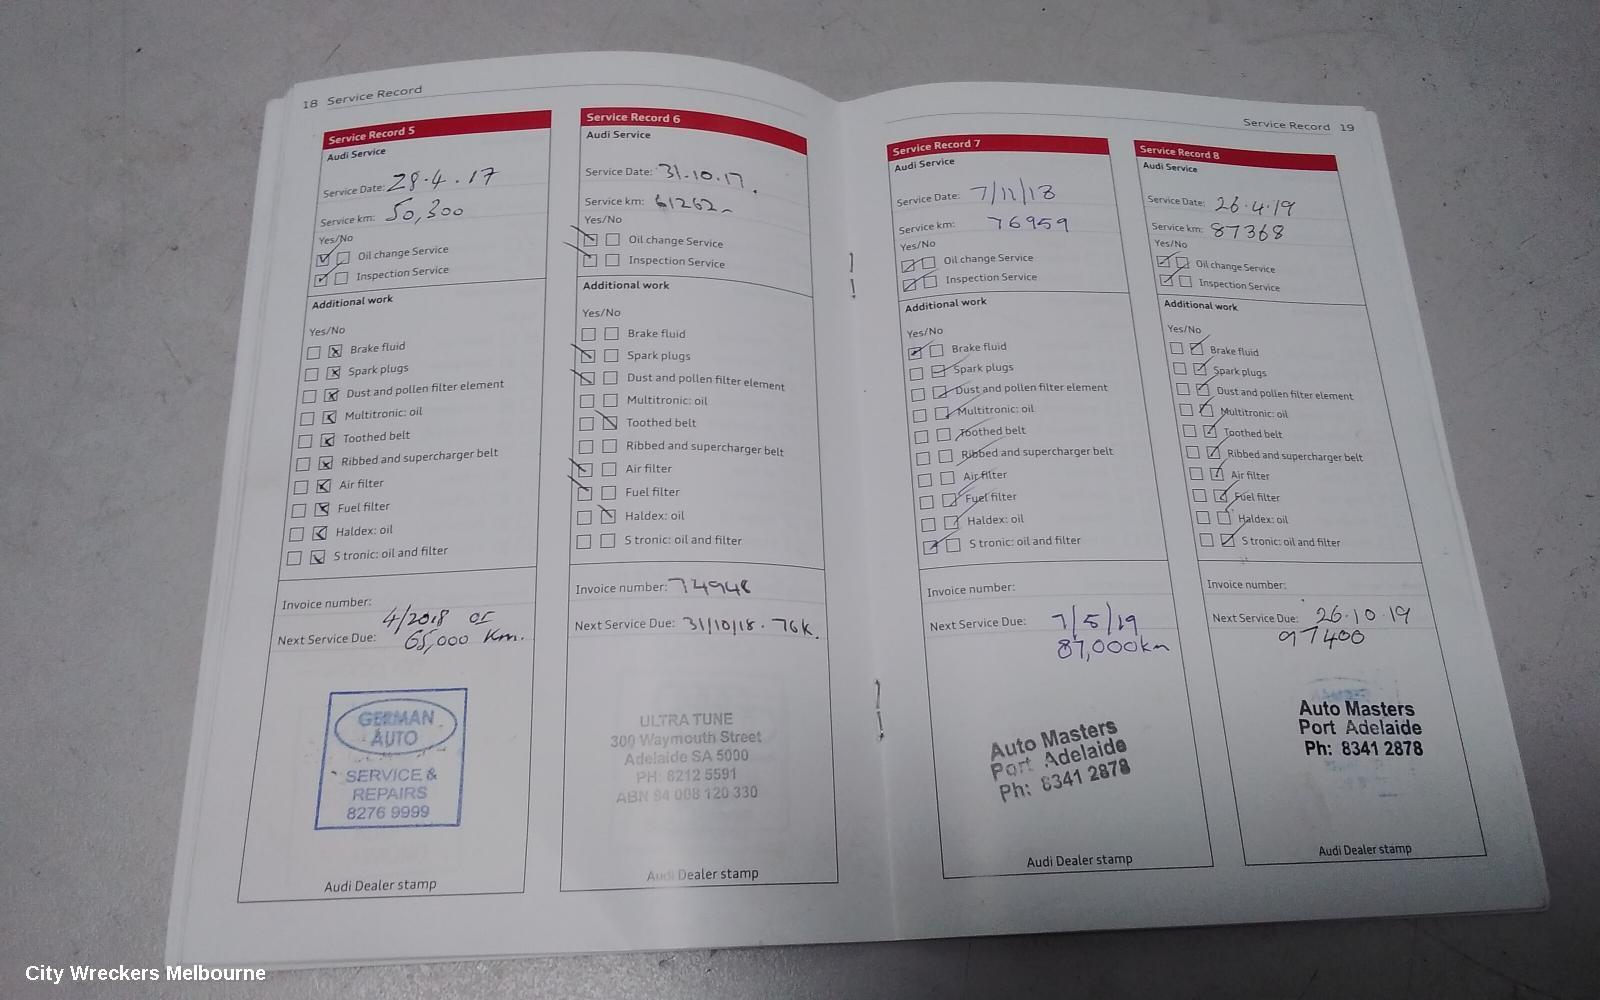 18 Service Record
Service Record 5
Audi Service
Service Date: 28.4.17
Service km: 50,300
Yes/No
Oil change Service
Inspection Service
Additional work
Yes/No
Brake fluid
Spark plugs
Dust and pollen filter element
Multitronic: oil
Toothed belt
Ribbed and supercharger belt
Air filter
Fuel filter
Haldex: oil
S tronic: oil and filter
Invoice number:
4/2018 or
Next Service Due: 65,000 Km.
GERMAN
AUTO
SERVICE &
REPAIRS
8276 9999
Audi Dealer stamp
Service Record 6
Audi Service
Service Date: 31.10.17.
Service km: 61262
Yes/No
Oil change Service
Inspection Service
Additional work
Yes/No
Brake fluid
Spark plugs
Dust and pollen filter element
Multitronic: oil
Toothed belt
Ribbed and supercharger belt
Air filter
Fuel filter
Haldex: oil
S tronic: oil and filter
Invoice number: 74948
Next Service Due: 31/10/18. 76K.
ULTRA TUNE
300 Waymouth Street
Adelaide SA 5000
PH: 8212 5591
ABN 94 008 120 330
Audi Dealer stamp
Service Record 19
Service Record 7
Audi Service
Service Date: 7/11/18
Service km: 76959
Yes/No
Oil change Service
Inspection Service
Additional work
Yes/No
Brake fluid
Spark plugs
Dust and pollen filter element
Multitronic: oil
Toothed belt
Ribbed and supercharger belt
Air filter
Fuel filter
Haldex: oil
S tronic: oil and filter
Invoice number:
Next Service Due: 7/5/19
87,000km
Auto Masters
Port Adelaide
Ph: 8341 2878
Audi Dealer stamp
Service Record 8
Audi Service
Service Date: 26.4.19
Service km: 87368
Yes/No
Oil change Service
Inspection Service
Additional work
Yes/No
Brake fluid
Spark plugs
Dust and pollen filter element
Multitronic: oil
Toothed belt
Ribbed and supercharger belt
Air filter
Fuel filter
Haldex: oil
S tronic: oil and filter
Invoice number:
Next Service Due: 26.10.19
97400
Auto Masters
Port Adelaide
Ph: 8341 2878
Audi Dealer stamp
City Wreckers Melbourne